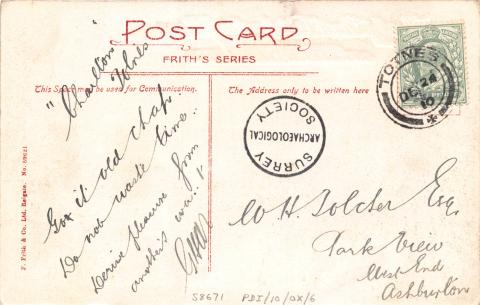 POST CARD
FRITH'S SERIES
This Space may be used for Communication.
The Address only to be written here
"Charlton"
Totnes
Got it old chap.
Do not waste time.
Derive pleasure from
another's
TOTNES
DE 24
10
SURREY
ARCHAEOLOGICAL
SOCIETY
W. H. Tolcher Esq.
Park View
West End
Ashburton
F. Frith & Co., Ltd. Reigate. No.
S8671 PDI/10/OX/6